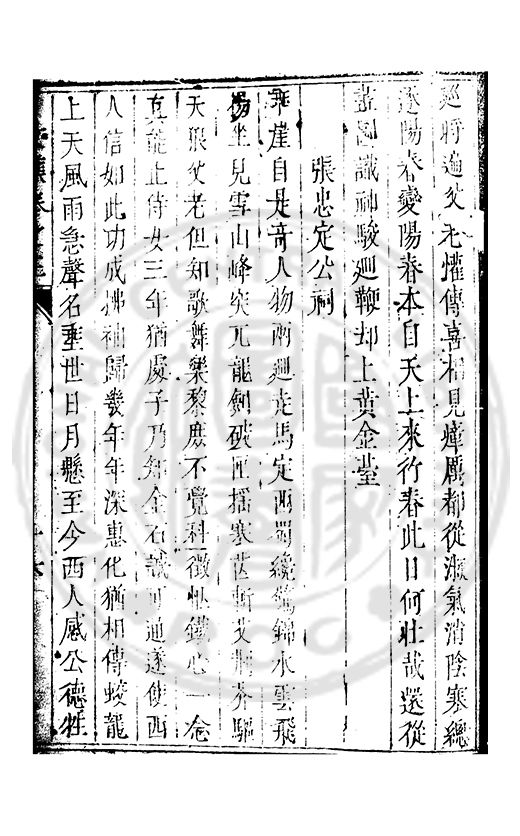 廵將遍父老懽傳喜相見瘴厲都從淑氣消陰寒總
逐陽春變陽春本自天上來行春此日何壯哉還從
畫圖識神駿廻鞭却上黃金臺
張忠定公祠
乖崖自是奇人物兩廻走馬定西蜀纔驚錦水雲飛
揚坐見雪山峰突兀龍劍破匣揺寒芒斬艾荊芥驅
天狼父老但知歌舞樂黎庶不覺科徵忙鐵心一念
真能止侍女三年猶處子乃知金石誠可通遂使西
人信如此功成拂袖歸幾年年深惠化猶相傳蛟龍
上天風雨急聲名垂世日月懸至今西人感公德牲